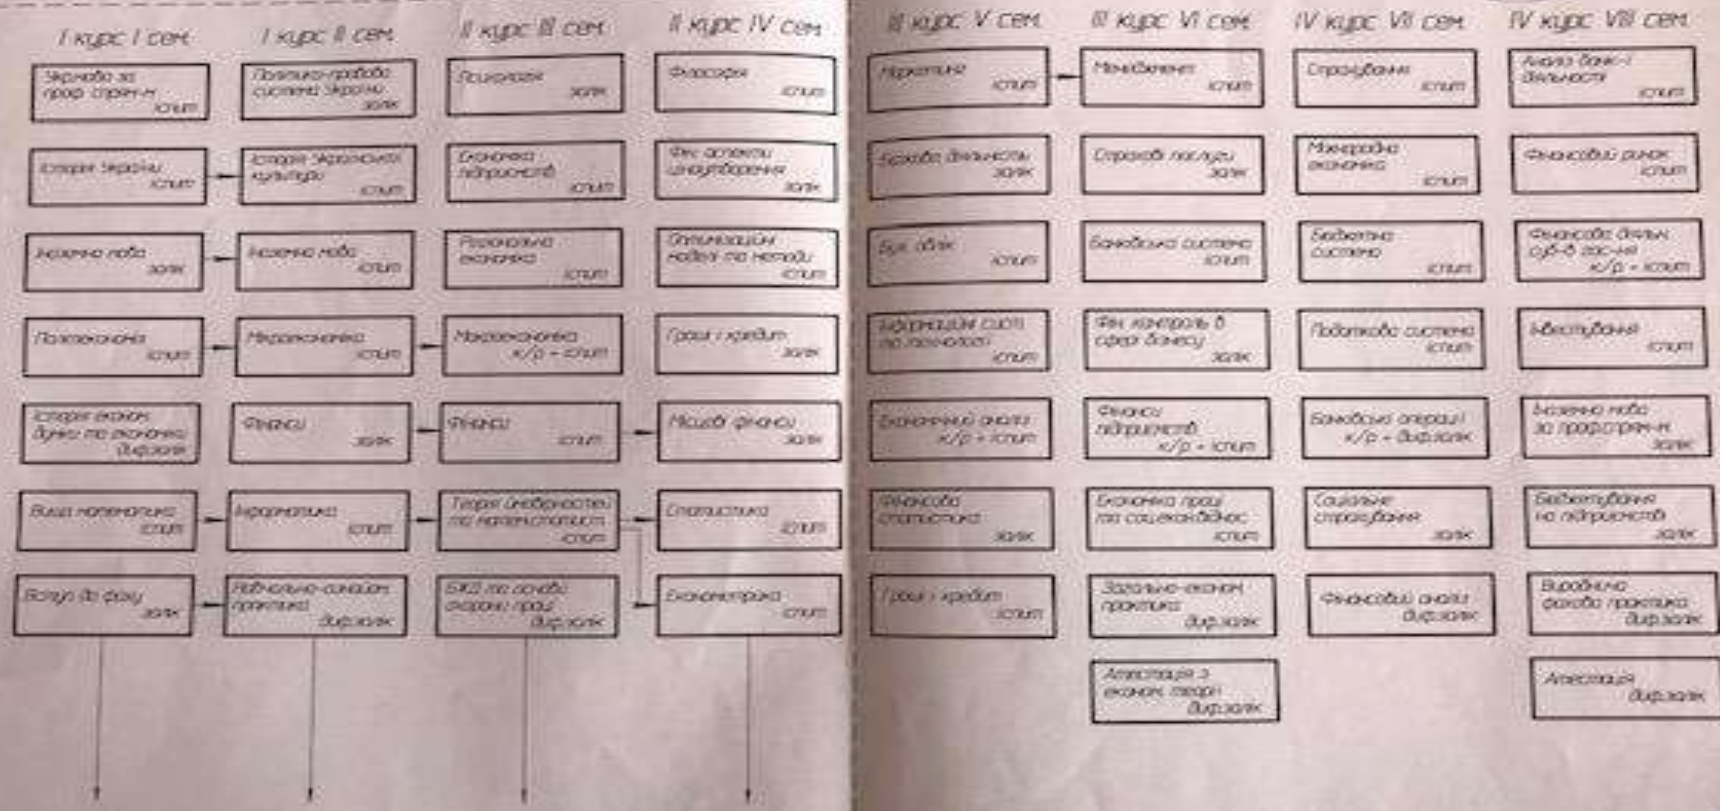 I курс I сем.
Укр.мова за
проф. спрям-м
іспит
Історія України
іспит
Іноземна мова
залік
Політекономія
іспит
Історія економ.
думки та економіки
диф.залік
Вища математика
іспит
Вступ до фаху
залік
I курс II сем.
Політико-правова
система України
залік
Історія Української
культури
іспит
Іноземна мова
іспит
Мікроекономіка
іспит
Фінанси
залік
Інформатика
іспит
Навчально-ознайом.
практика
диф.залік
II курс III сем.
Психологія
залік
Економіка
підприємств
іспит
Регіональна
економіка
іспит
Макроекономіка
к/р + іспит
Фінанси
іспит
Теорія ймовірностей
та матем.статист.
іспит
БЖД та основи
охорони праці
диф.залік
II курс IV сем.
Філософія
іспит
Фін. аспекти
ціноутворення
залік
Оптимізаційні
моделі та методи
іспит
Гроші і кредит
залік
Місцеві фінанси
залік
Статистика
іспит
Економетрика
іспит
III курс V сем.
Маркетинг
іспит
діяльність
залік
Бух. облік
іспит
Інформаційні сист.
та технології
іспит
Економічний аналіз
к/р + іспит
Фінансова
статистика
залік
Гроші і кредит
іспит
III курс VI сем.
Менеджмент
іспит
Страхові послуги
залік
Банківська система
іспит
Фін. контроль в
сфері бізнесу
залік
Фінанси
підприємств
к/р + іспит
Економіка праці
та соц.екон.віднос.
іспит
Загально-економ.
практика
диф.залік
Атестація з
економ. теорії
диф.залік
IV курс VII сем.
Страхування
іспит
Міжнародна
економіка
іспит
Бюджетна
система
іспит
Податкова система
іспит
Банківські операції
к/р + диф.залік
Соціальне
страхування
залік
Фінансовий аналіз
диф.залік
IV курс VIII сем.
Аналіз банк-ї
діяльності
іспит
Фінансовий ринок
іспит
Фінансова діяльн.
суб-в гос-ня
к/р + іспит
Інвестування
іспит
Іноземна мова
за проф.спрям-м
залік
Бюджетування
на підприємстві
залік
Виробнича
фахова практика
диф.залік
Атестація
диф.залік